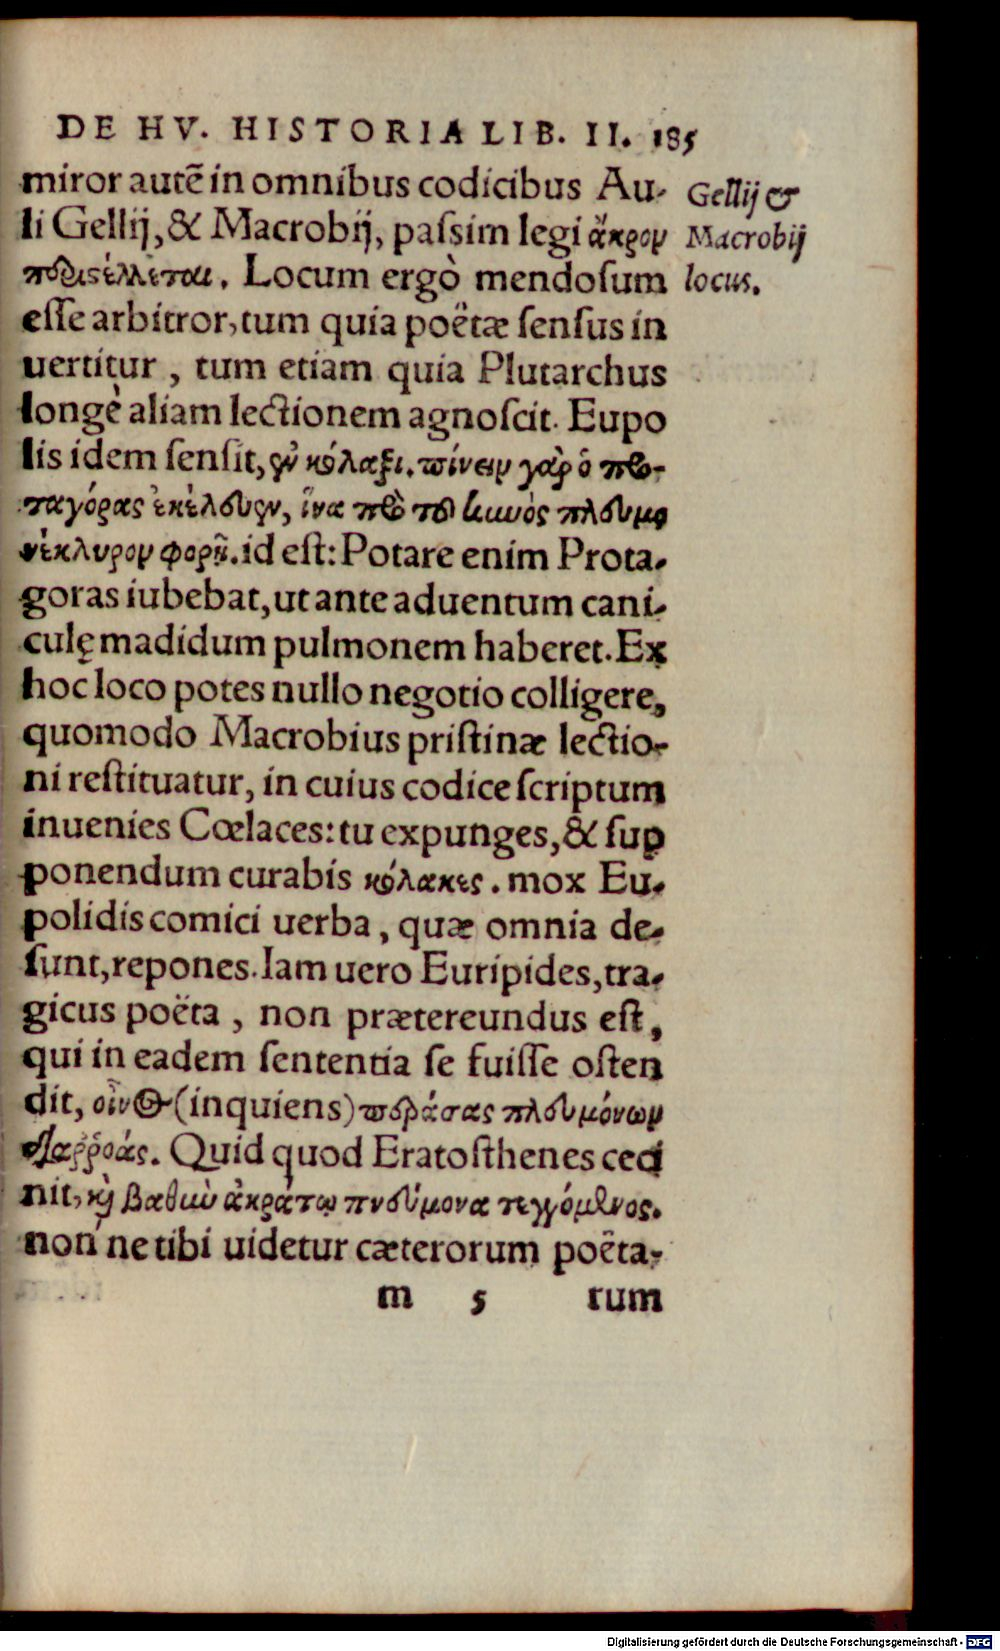 DE HV. HISTORIA LIB. II. 185
miror autē in omnibus codicibus Au-
li Gellij, & Macrobij, passim legi ἄκρον
περιστέλλεται. Locum ergò mendosum
esse arbitror, tum quia poëtæ sensus in
uertitur, tum etiam quia Plutarchus
longè aliam lectionem agnoscit. Eupo
lis idem sensit, ἐν κόλαξι. πίνειν γὰρ ὁ πρω-
ταγόρας ἐκέλευεν, ἵνα πρὸ τοῦ κυνὸς πλεύμο
νέκλυρον φορῇ. id est: Potare enim Prota-
goras iubebat, ut ante aduentum cani-
culę madidum pulmonem haberet. Ex
hoc loco potes nullo negotio colligere,
quomodo Macrobius pristinæ lectio-
ni restituatur, in cuius codice scriptum
inuenies Cœlaces: tu expunges, & sup
ponendum curabis κόλακες. mox Eu-
polidis comici uerba, quæ omnia de-
sunt, repones. Iam uero Euripides, tra-
gicus poëta, non prætereundus est,
qui in eadem sententia se fuisse osten
dit, οἶνος (inquiens) περάσας πλευμόνων
διαρροάς. Quid quod Eratosthenes ceci
nit, καὶ βαθὺν ἀκράτῳ πνεύμονα τεγγόμενος.
non ne tibi uidetur cæterorum poëta-
m 5 rum
Gellij &
Macrobij
locus.
Digitalisierung gefördert durch die Deutsche Forschungsgemeinschaft - DFG